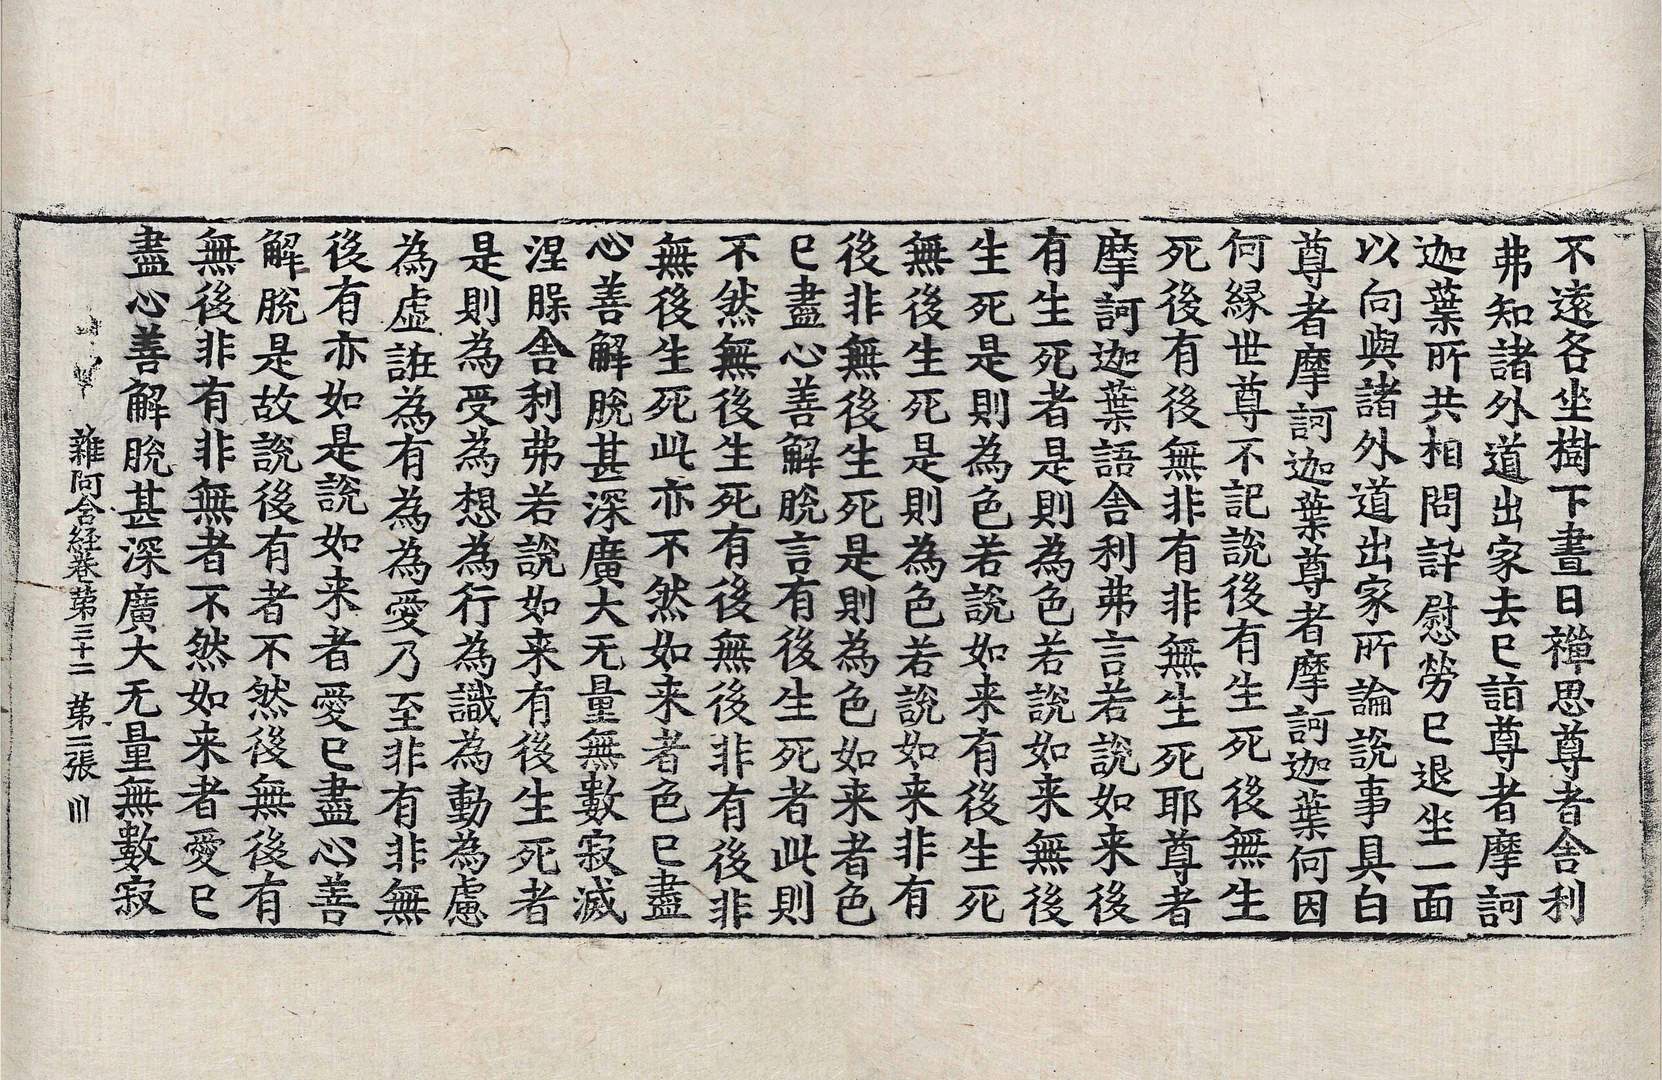 不遠各坐樹下晝日禪思尊者舍利
弗知諸外道出家去已詣尊者摩訶
迦葉所共相問訊慰勞已退坐一面
以向與諸外道出家所論說事具白
尊者摩訶迦葉尊者摩訶迦葉何因
何緣世尊不記說後有生死後無生
死後有後無非有非無生死耶尊者
摩訶迦葉語舍利弗言若說如来後
有生死者是則為色若說如来無後
生死是則為色若說如来有後生死
無後生死是則為色若說如来非有
後非無後生死是則為色如来者色
已盡心善解脫言有後生死者此則
不然無後生死有後無後非有後非
無後生死此亦不然如来者色已盡
心善解脫甚深廣大无量無數寂滅
涅槃舍利弗若說如来有後生死者
是則為受為想為行為識為動為慮
為虛誑為有為為愛乃至非有非無
後有亦如是說如来者愛已盡心善
解脫是故說後有者不然後無後有
無後非有非無者不然如来者愛已
盡心善解脫甚深廣大无量無數寂
雜阿含經卷第三十二　第二張